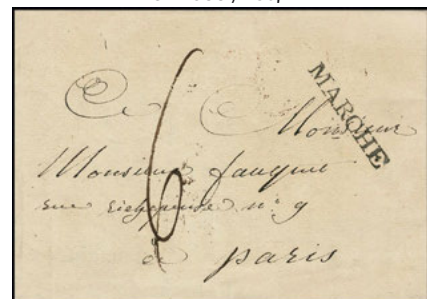 MARCHE
A
Monsieur
Monsieur fauquet
rue richepanse n° 9
a paris
6